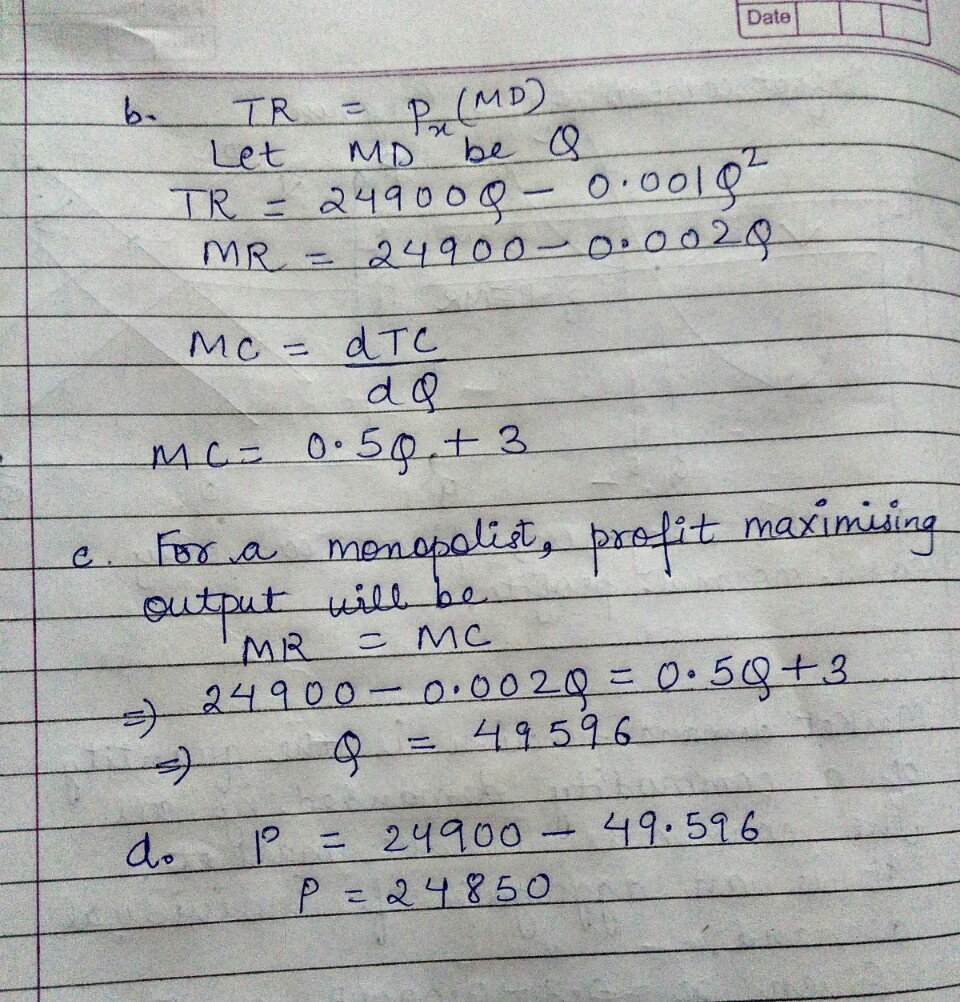 Date
b. TR = Px (MD)
Let MD be Q
TR = 24900Q - 0.001Q²
MR = 24900 - 0.002Q
MC = dTC
dQ
MC = 0.5Q + 3
c. For a monopolist, profit maximising
output will be
MR = MC
=) 24900 - 0.002Q = 0.5Q + 3
=) Q = 49596
d. P = 24900 - 49.596
P = 24850